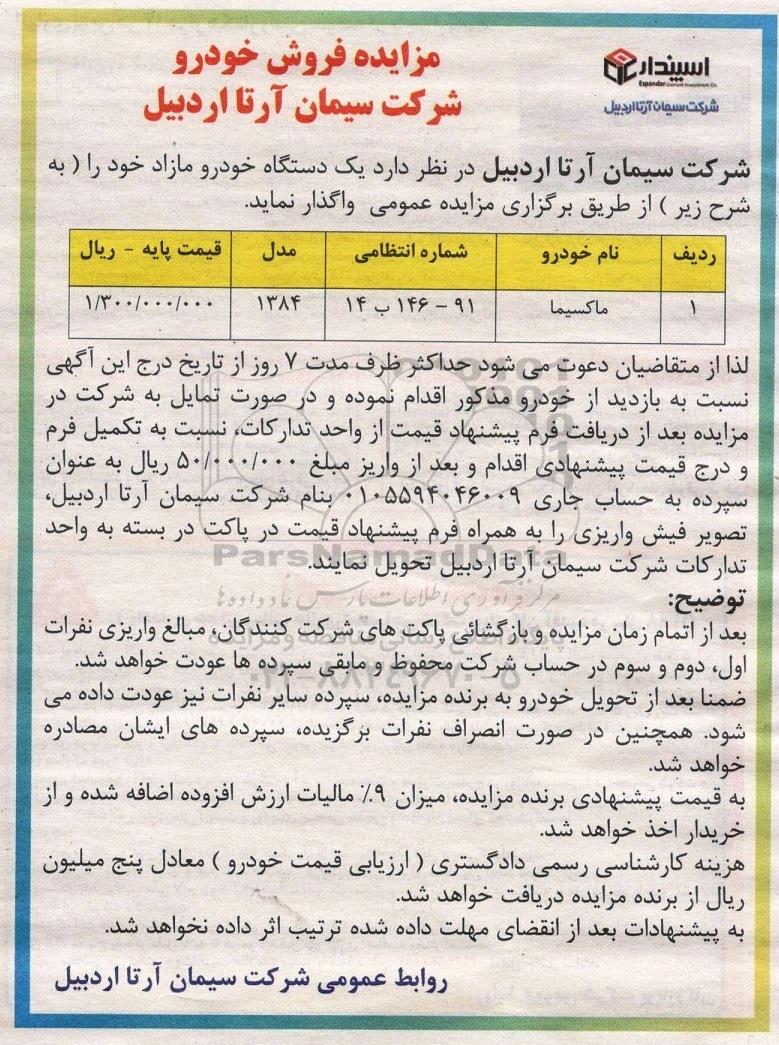 اسپندار
Espandar Cement Investment Co.
شرکت سیمان آرتا اردبیل
مزایده فروش خودرو
شرکت سیمان آرتا اردبیل
شرکت سیمان آرتا اردبیل در نظر دارد یک دستگاه خودرو مازاد خود را ( به
شرح زیر ) از طریق برگزاری مزایده عمومی واگذار نماید.
ردیف نام خودرو شماره انتظامی مدل قیمت پایه - ریال
۱ ماکسیما ۹۱ - ۱۴۶ ب ۱۴ ۱۳۸۴ ۱/۳۰۰/۰۰۰/۰۰۰
لذا از متقاضیان دعوت می شود حداکثر ظرف مدت ۷ روز از تاریخ درج این آگهی
نسبت به بازدید از خودرو مذکور اقدام نموده و در صورت تمایل به شرکت در
مزایده بعد از دریافت فرم پیشنهاد قیمت از واحد تدارکات، نسبت به تکمیل فرم
و درج قیمت پیشنهادی اقدام و بعد از واریز مبلغ ۵۰/۰۰۰/۰۰۰ ریال به عنوان
سپرده به حساب جاری ۰۱۰۵۵۹۴۰۴۶۰۰۹ بنام شرکت سیمان آرتا اردبیل،
تصویر فیش واریزی را به همراه فرم پیشنهاد قیمت در پاکت در بسته به واحد
تدارکات شرکت سیمان آرتا اردبیل تحویل نمایند.
ParsNamadData
مرکز فرآوری اطلاعات پارس نماد داده ها
توضیح:
بعد از اتمام زمان مزایده و بازگشائی پاکت های شرکت کنندگان، مبالغ واریزی نفرات
اول، دوم و سوم در حساب شرکت محفوظ و مابقی سپرده ها عودت خواهد شد.
۰۲۱-۸۸۳۴۹۶۷۰-۵
ضمنا بعد از تحویل خودرو به برنده مزایده، سپرده سایر نفرات نیز عودت داده می
شود. همچنین در صورت انصراف نفرات برگزیده، سپرده های ایشان مصادره
خواهد شد.
به قیمت پیشنهادی برنده مزایده، میزان ۹٪ مالیات ارزش افزوده اضافه شده و از
خریدار اخذ خواهد شد.
هزینه کارشناسی رسمی دادگستری ( ارزیابی قیمت خودرو ) معادل پنج میلیون
ریال از برنده مزایده دریافت خواهد شد.
به پیشنهادات بعد از انقضای مهلت داده شده ترتیب اثر داده نخواهد شد.
روابط عمومی شرکت سیمان آرتا اردبیل